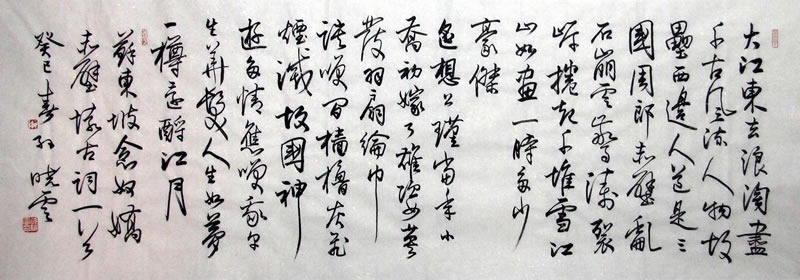 大江東去浪淘盡
千古風流人物故
壘西邊人道是三
國周郎赤壁亂
石崩雲驚濤裂
岸捲起千堆雪江
山如畫一時多少
豪傑
遙想公瑾當年小
喬初嫁了雄姿英
發羽扇綸巾
談笑間檣櫓灰飛
煙滅故國神
遊多情應笑我早
生華髮人生如夢
一樽還酹江月
蘇東坡念奴嬌
赤壁懷古詞一首
癸巳春孙晓雲